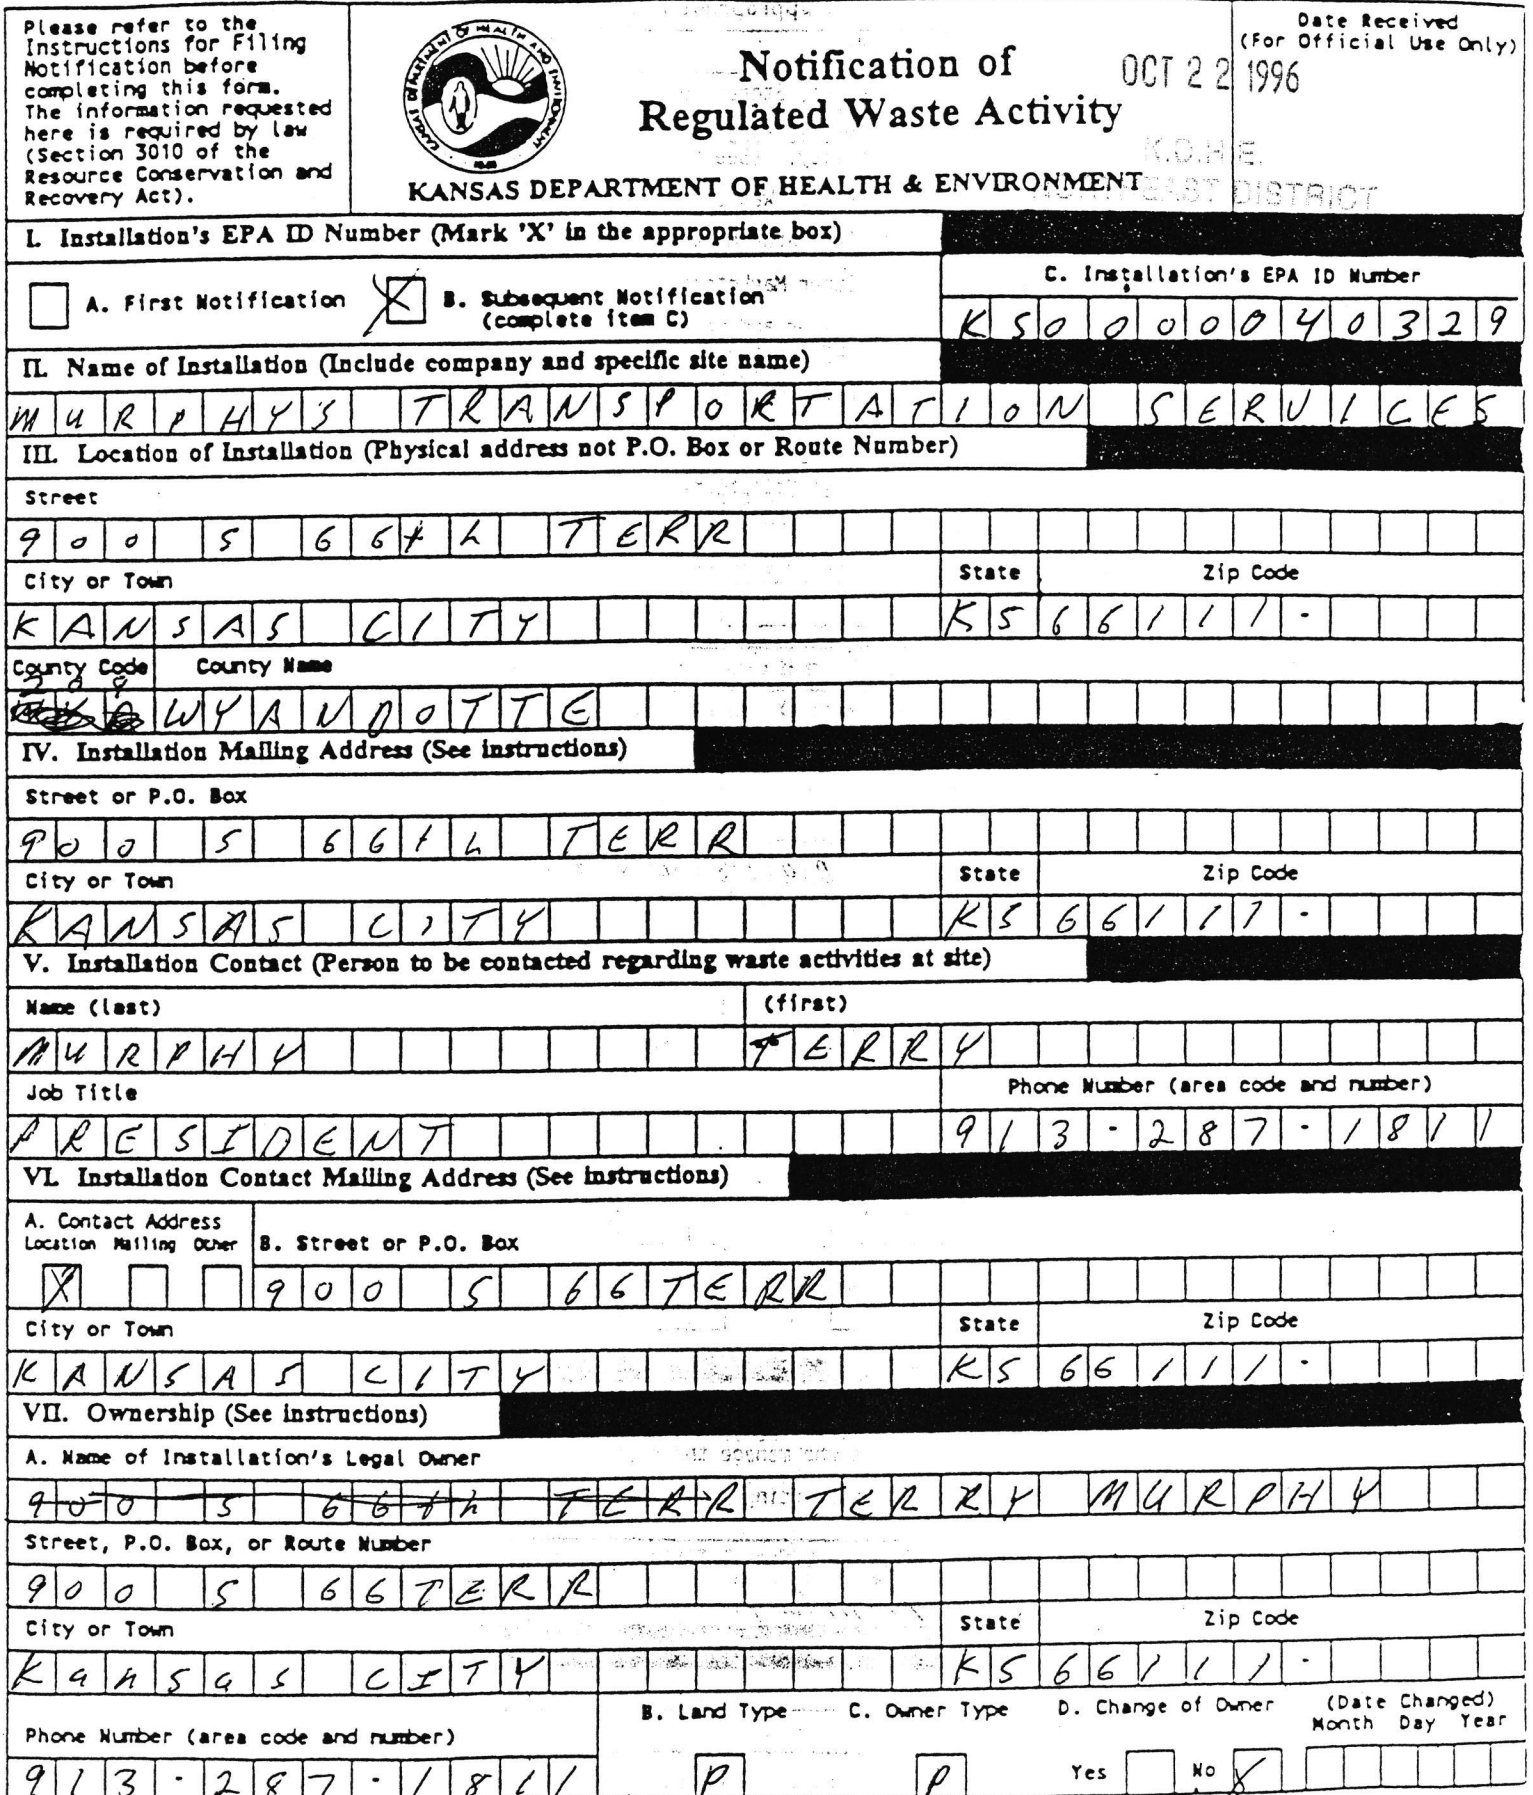 Please refer to the
Instructions for Filing
Notification before
completing this form.
The information requested
here is required by law
(Section 3010 of the
Resource Conservation and
Recovery Act).
KANSAS DEPARTMENT OF HEALTH AND ENVIRONMENT
Notification of
Regulated Waste Activity
KANSAS DEPARTMENT OF HEALTH & ENVIRONMENT
Date Received
(For Official Use Only)
OCT 22 1996
K.D.H.E.
NORTHEAST DISTRICT
I. Installation's EPA ID Number (Mark 'X' in the appropriate box)
A. First Notification
X B. Subsequent Notification
(complete item C)
C. Installation's EPA ID Number
KS0000040329
II. Name of Installation (Include company and specific site name)
MURPHY'S TRANSPORTATION SERVICES
III. Location of Installation (Physical address not P.O. Box or Route Number)
Street
900 S 66th TERR
City or Town State Zip Code
KANSAS CITY KS 66111-
County Code County Name
209 WYANDOTTE
IV. Installation Mailing Address (See instructions)
Street or P.O. Box
900 S 66th TERR
City or Town State Zip Code
KANSAS CITY KS 66111-
V. Installation Contact (Person to be contacted regarding waste activities at site)
Name (last) (first)
MURPHY TERRY
Job Title Phone Number (area code and number)
PRESIDENT 913-287-1811
VI. Installation Contact Mailing Address (See instructions)
A. Contact Address
Location Mailing Other B. Street or P.O. Box
X 900 S 66TERR
City or Town State Zip Code
KANSAS CITY KS 66111-
VII. Ownership (See instructions)
A. Name of Installation's Legal Owner
900 S 66th TERR TERRY MURPHY
Street, P.O. Box, or Route Number
900 S 66TERR
City or Town State Zip Code
Kansas CITY KS 66111-
Phone Number (area code and number) B. Land Type C. Owner Type D. Change of Owner (Date Changed)
Month Day Year
913-287-1811 P P Yes No X